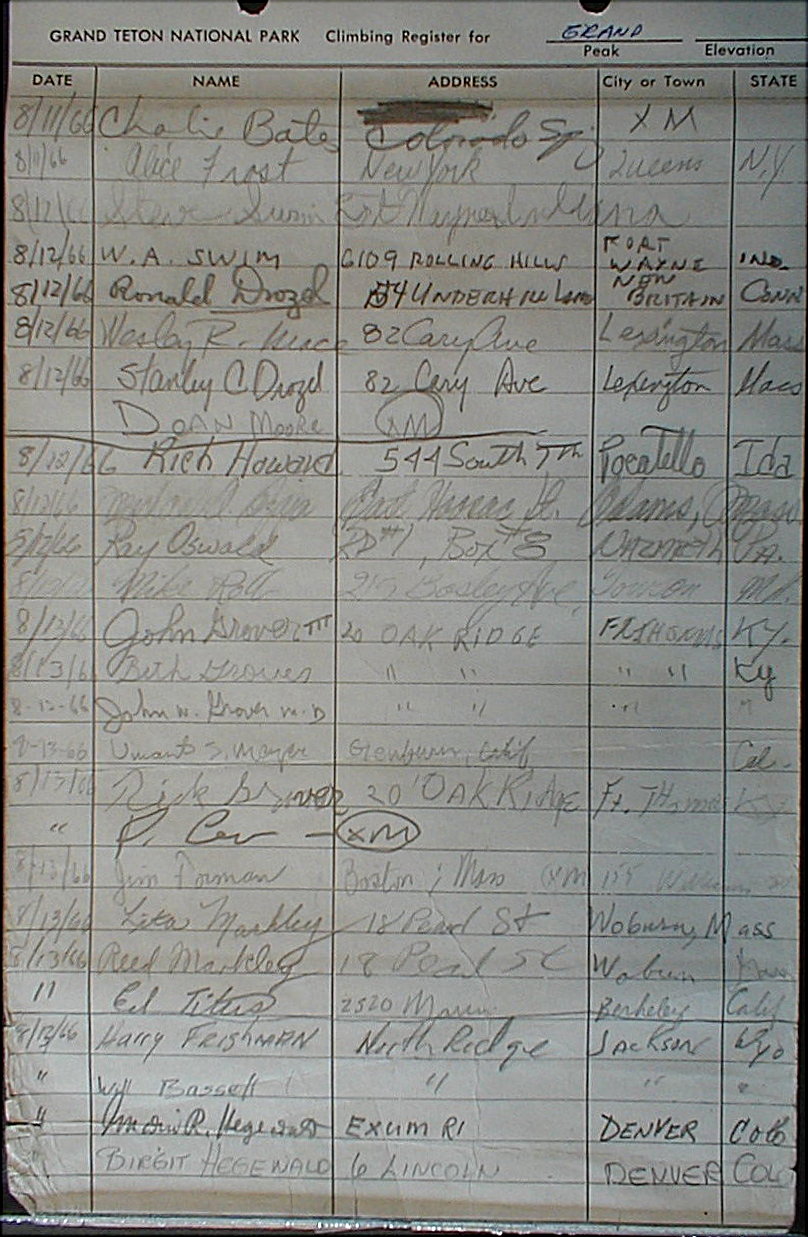 GRAND TETON NATIONAL PARK Climbing Register for GRAND
Peak Elevation
DATE NAME ADDRESS City or Town STATE
8/11/66 Charlie Bates Colorado Sp XM
8/11/66 Alice Frost New York Queens N.Y
8/12/66 Steve Swim Fort Wayne Indiana
8/12/66 W.A. SWIM 6109 ROLLING HILLS FORT WAYNE IND.
8/12/66 Ronald Drozd 54 UNDERHILL LANE NEW BRITAIN CONN
8/12/66 Wesley R. 82 Cary Ave Lexington Mass
8/12/66 Stanley C. Drozd 82 Cary Ave Lexington Mass
DEAN MOORE XM
8/12/66 Rich Howard 544 South 7th Pocatello Ida
8/12/66 East Hoosac St. Adams, Mass
8/12/66 Ray Oswald RD #1, Box #8 NAZARETH PA.
Mike Roll Bosley Ave, Towson Md.
8/13/66 John Grover III 20 OAK RIDGE FT. THOMAS KY.
8/13/6 Beth Grover " " " " Ky
8-13-66 John W. Grover M.D " " " " "
8-13-66 S. Mayer Glenburn, Calif Cal.
8/13/66 Rick Grover 20 OAK RIDGE Ft. Thomas Ky
" P. XM
8/13/66 Jim Forman Boston, Mass XM
8/13/66 Lita Markley 18 Pearl St Woburn, Mass
8/13/66 Reed Markley 18 Pearl St Woburn Mass
11 Ed Titus 2520 Berkeley Calif
8/13/66 Harry FRISHMAN North Ridge JACKSON Wyo
" Bassett " " "
" R. Hegewald EXUM RI DENVER Colo
BIRGIT HEGEWALD 6 LINCOLN DENVER COLO